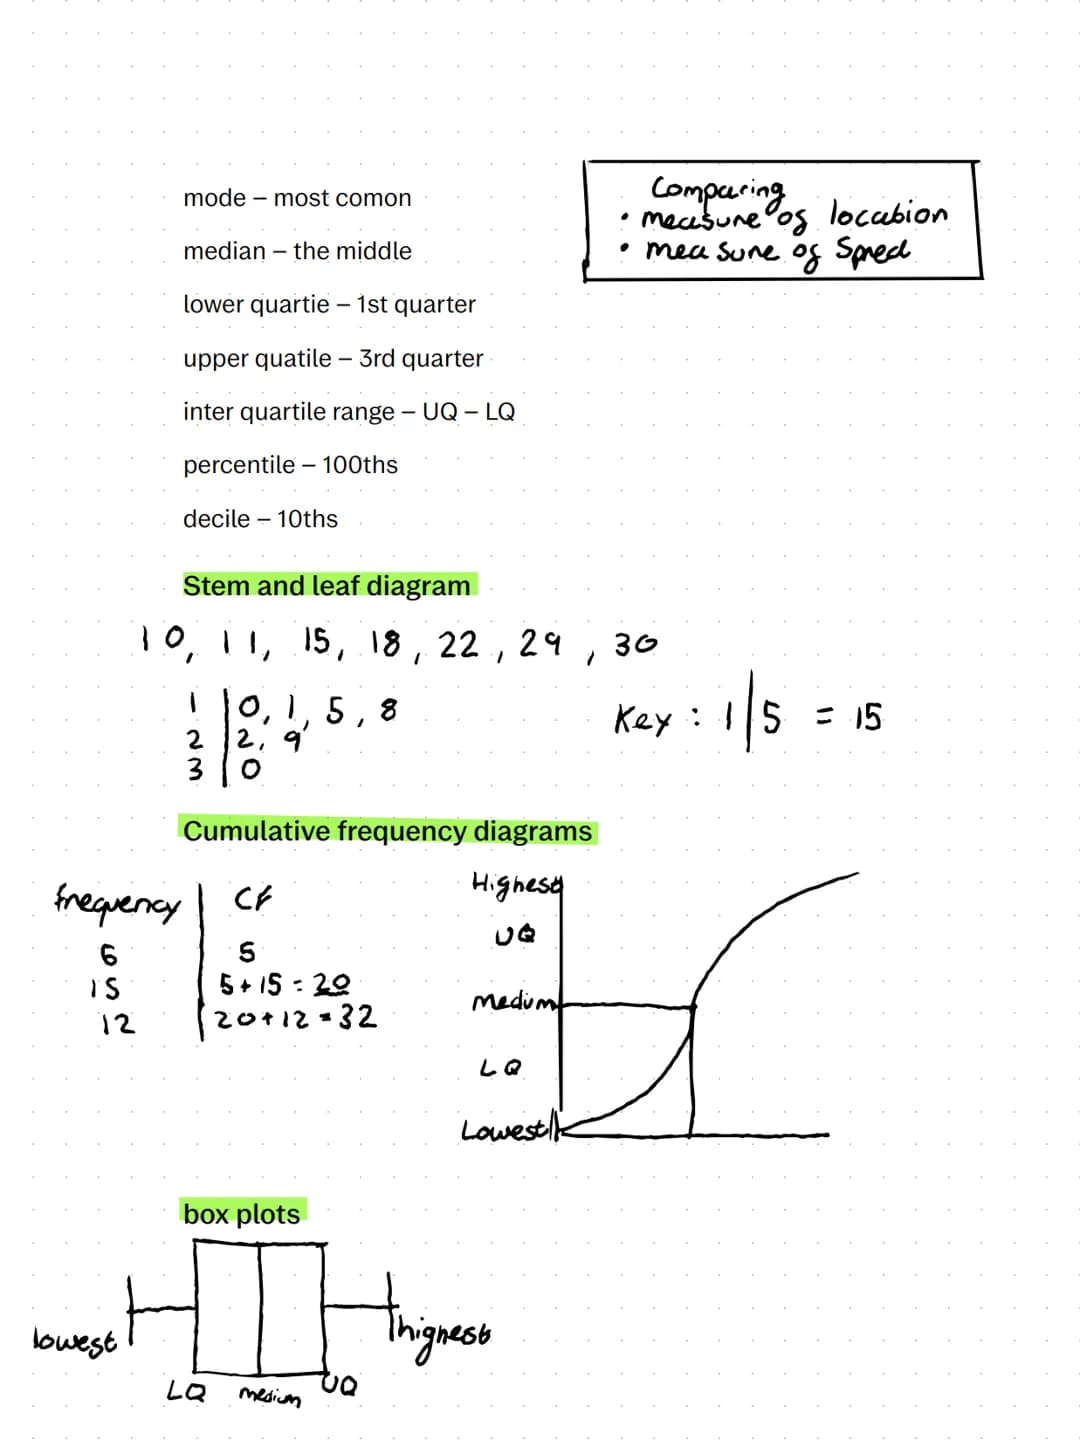 Comparing
• measure of location
• measure of Spred
mode – most comon
median – the middle
lower quartie – 1st quarter
upper quatile – 3rd quarter
inter quartile range – UQ – LQ
percentile – 100ths
decile – 10ths
Stem and leaf diagram
10, 11, 15, 18, 22, 29, 30
1 | 0, 1, 5, 8
2 | 2, 9
3 | 0
Key : 1 | 5 = 15
Cumulative frequency diagrams
frequency | CF
6 | 5
15 | 5+15=20
12 | 20+12=32
Highest
UQ
medium
LQ
Lowest
box plots
lowest
highest
LQ medium UQ